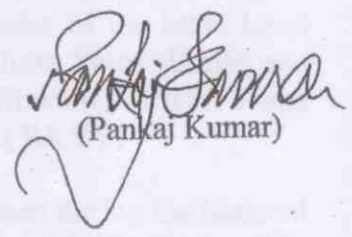 Pankaj Kumar
(Pankaj Kumar)